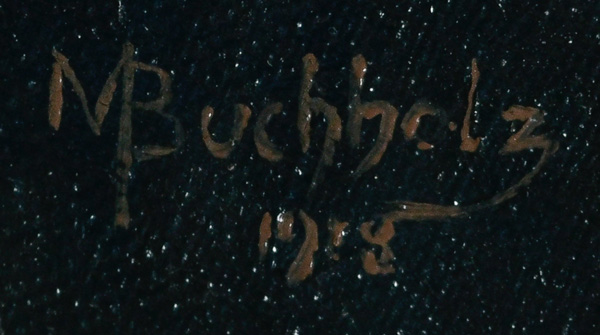 MBuchholz
1918